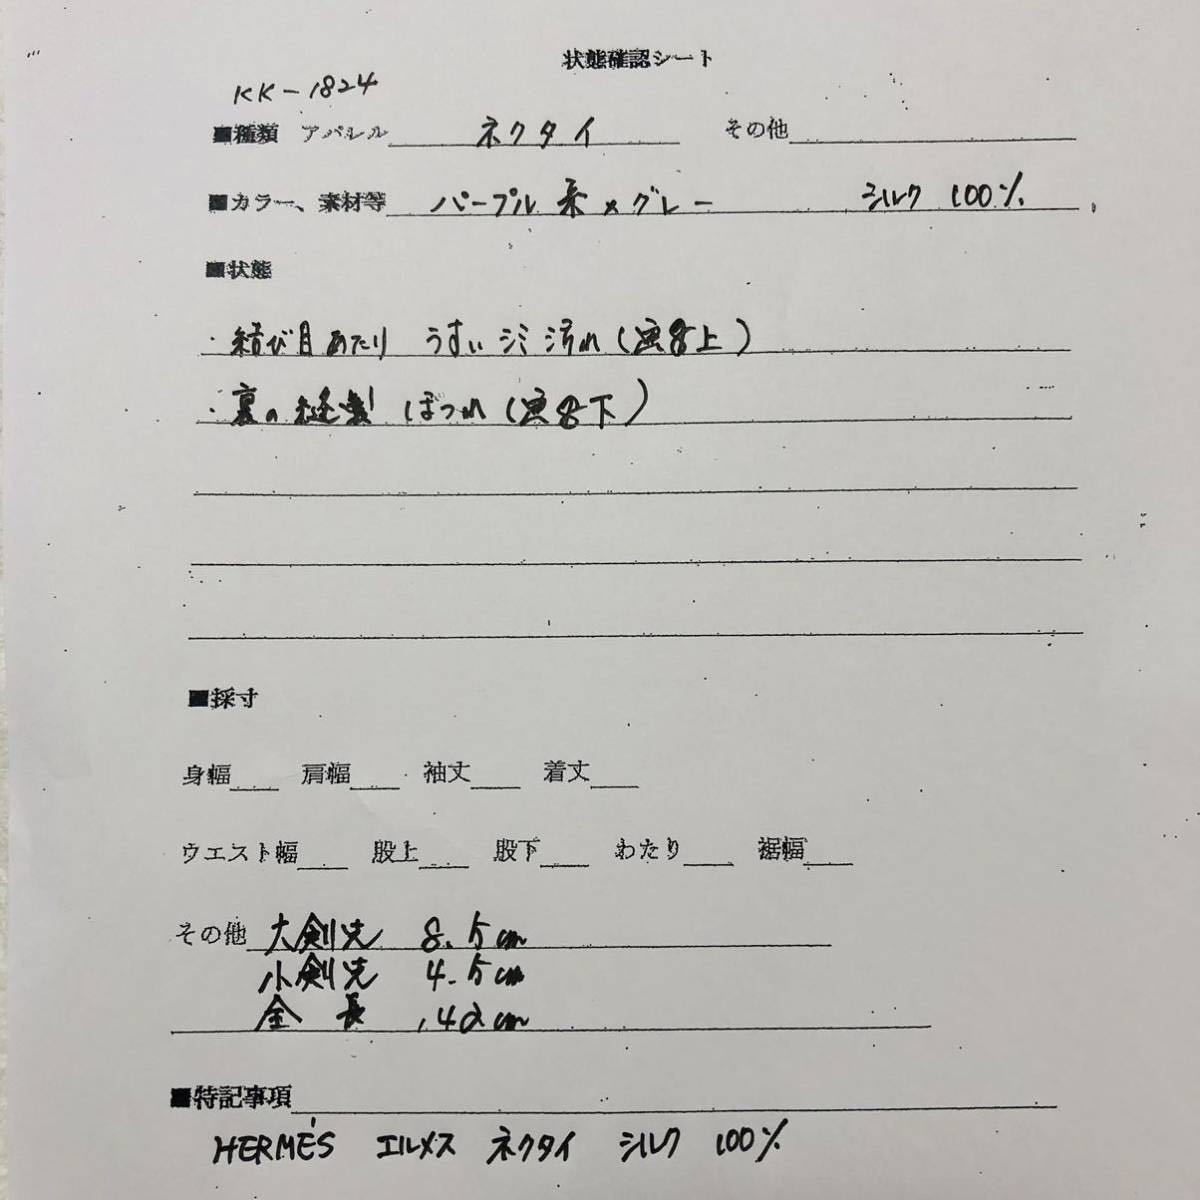 状態確認シート
KK-1824
■種類 アパレル ネクタイ その他
■カラー、素材等 パープル系×グレー シルク 100%
■状態
・結び目あたり うすいシミ 汚れ(画像上)
・裏の縫製 ほつれ(画像下)
■採寸
身幅 肩幅 袖丈 着丈
ウエスト幅 股上 股下 わたり 裾幅
その他 大剣先 8.5cm
小剣先 4.5cm
全長 142cm
■特記事項
HERMÈS エルメス ネクタイ シルク 100%